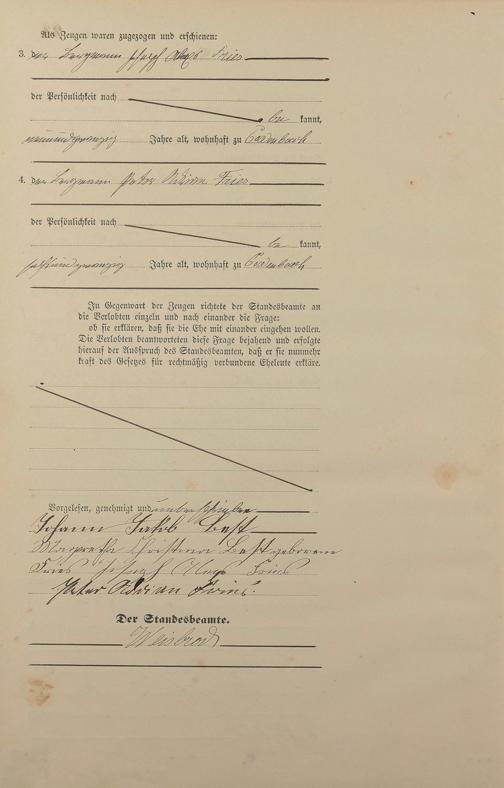 Als Zeugen waren zugezogen und erschienen:
3. der Bergmann Joseph Fries
der Persönlichkeit nach
be kannt,
neunundzwanzig Jahre alt, wohnhaft zu
4. der Bergmann Peter Adrian Fries
der Persönlichkeit nach
be kannt,
Jahre alt, wohnhaft zu
In Gegenwart der Zeugen richtete der Standesbeamte an
die Verlobten einzeln und nach einander die Frage:
ob sie erklären, daß sie die Ehe mit einander eingehen wollen.
Die Verlobten beantworteten diese Frage bejahend und erfolgte
hierauf der Ausspruch des Standesbeamten, daß er sie nunmehr
kraft des Gesetzes für rechtmäßig verbundene Eheleute erkläre.
Vorgelesen, genehmigt und unterschrieben
Johann Jakob Best
Christina Best geborene
Fries Joseph Fries
Peter Adrian Fries.
Der Standesbeamte.
Weisbrod